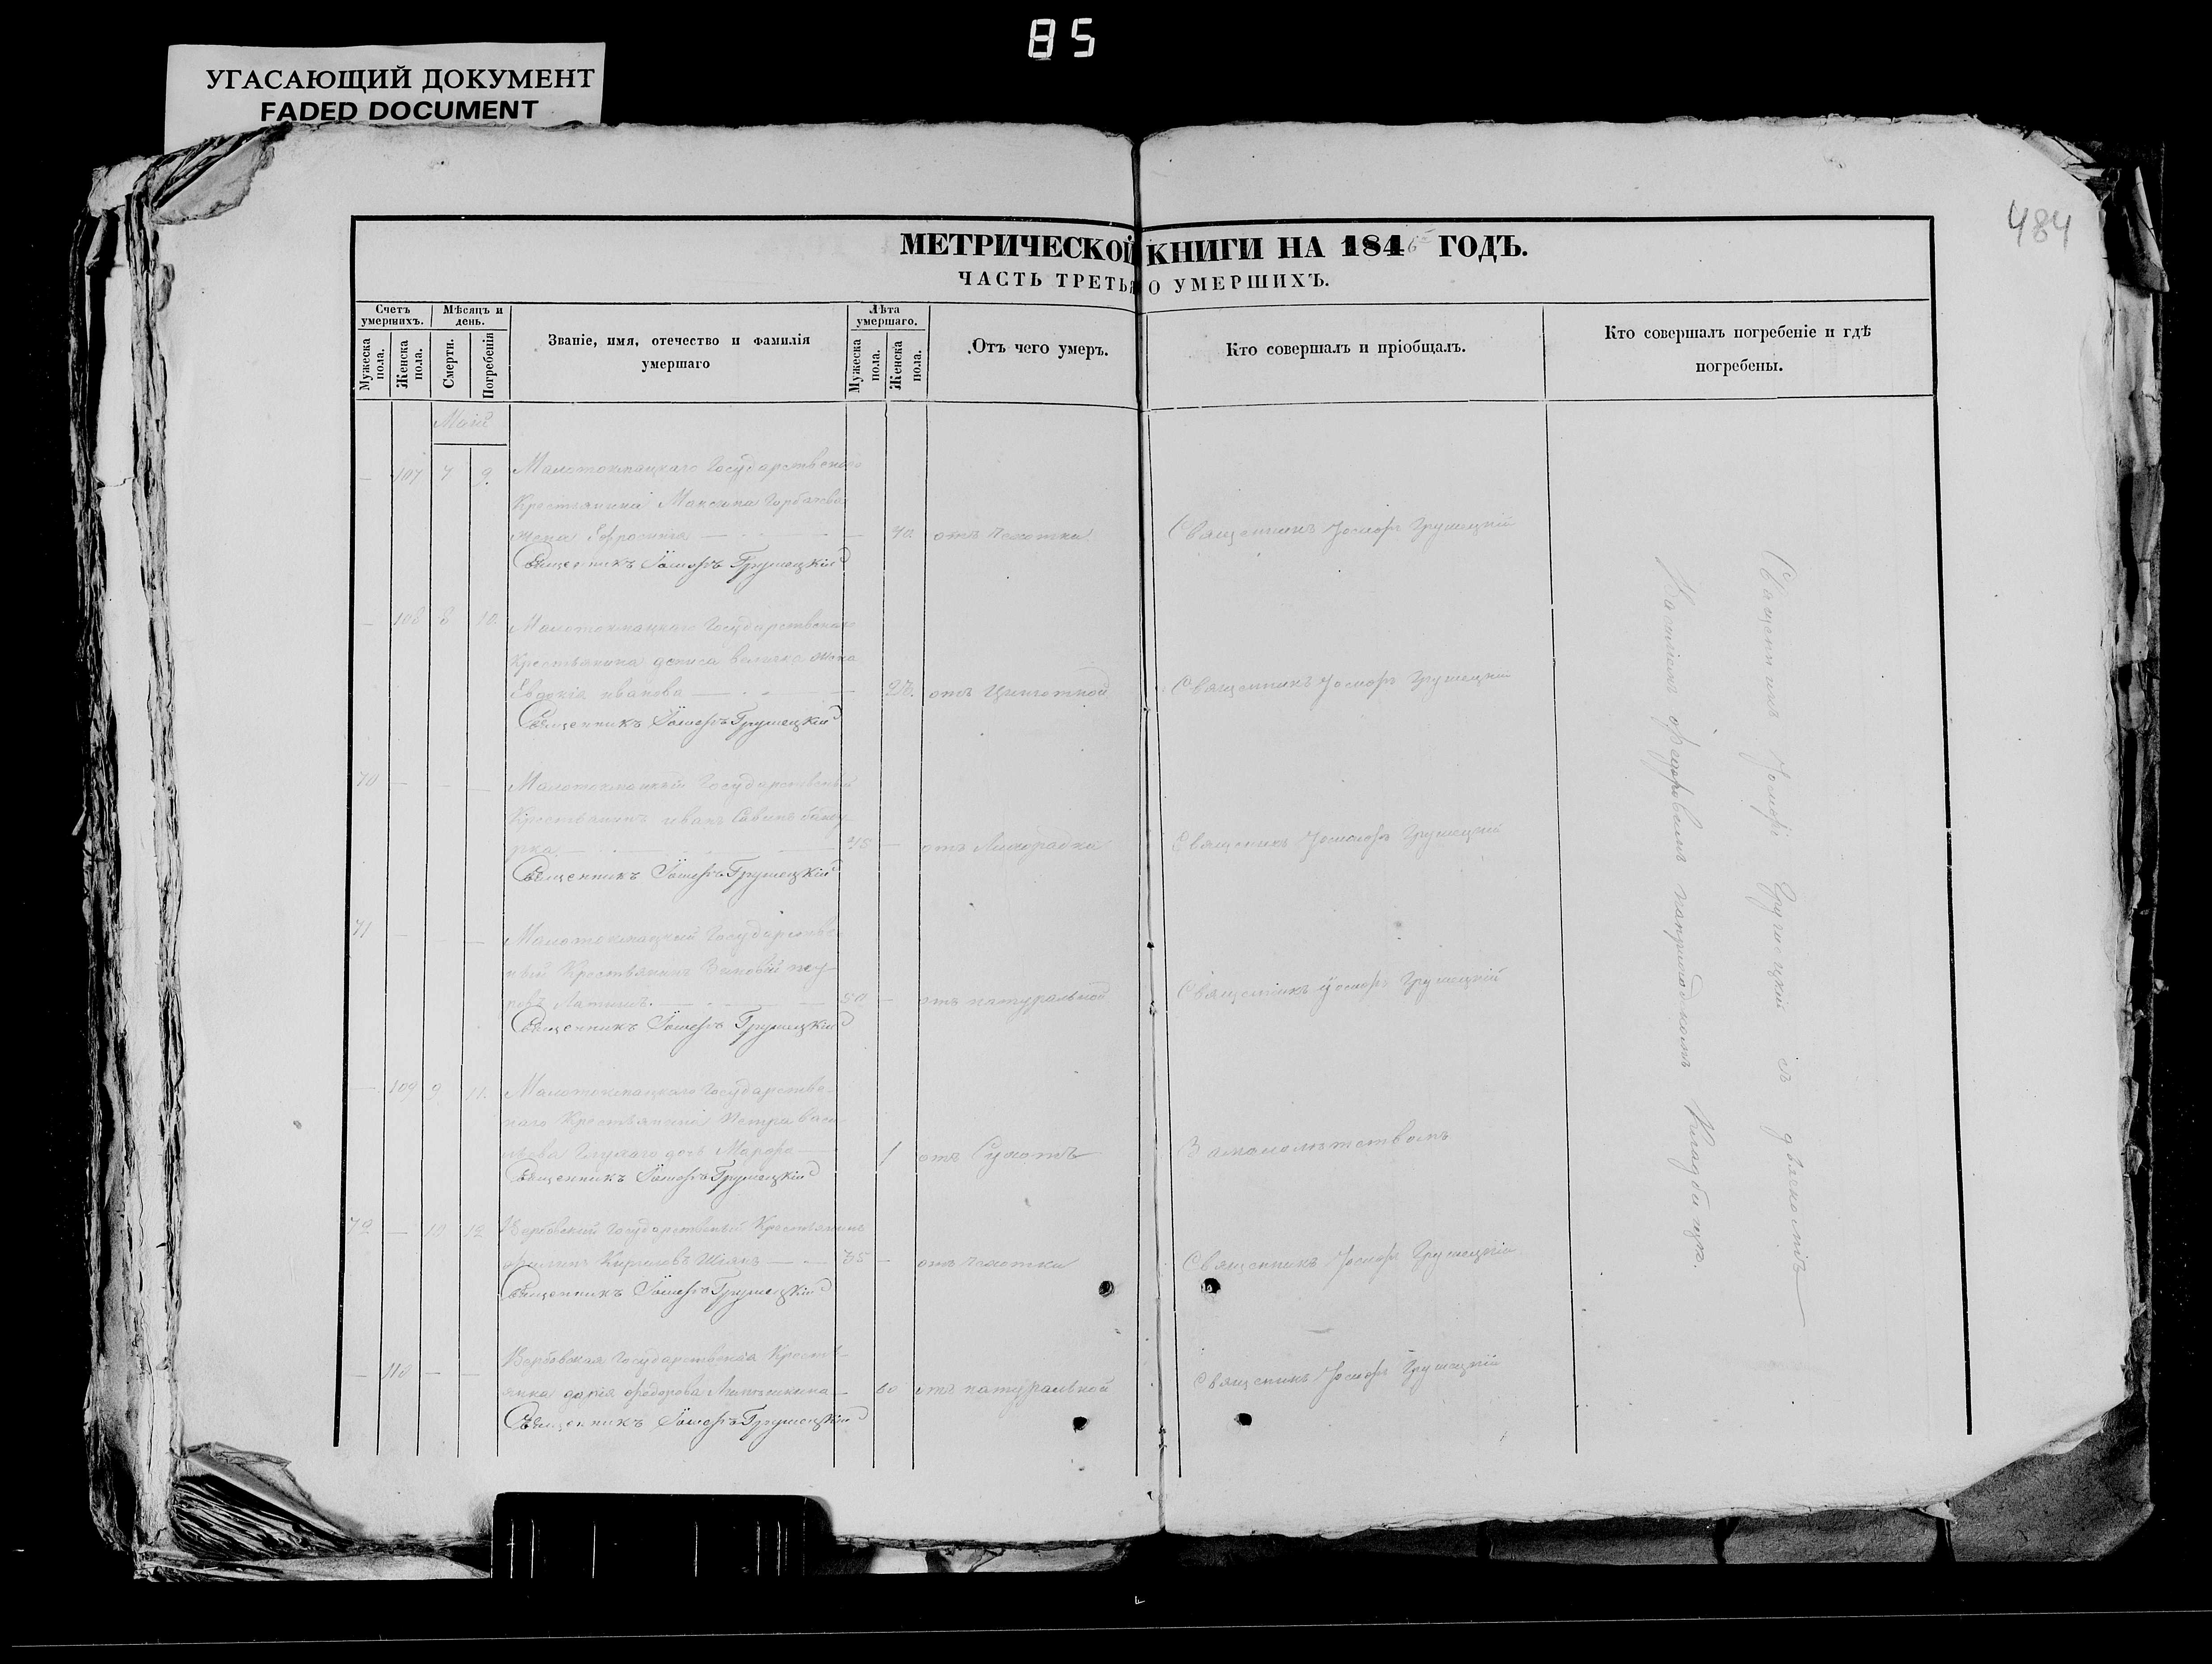 85
УГАСАЮЩИЙ ДОКУМЕНТ
FADED DOCUMENT
484
МЕТРИЧЕСКОЙ КНИГИ НА 1846 ГОДЪ.
ЧАСТЬ ТРЕТЬЯ О УМЕРШИХЪ.
Счетъ умершихъ.
Мужеска пола.
Женска пола.
Мѣсяцъ и день.
Смерти.
Погребенія
Званіе, имя, отечество и фамилія
умершаго
Лѣта умершаго.
Мужеска пола.
Женска пола.
Отъ чего умеръ.
Кто совершалъ и пріобщалъ.
Кто совершалъ погребеніе и гдѣ
погребены.
Маій
— 107 7 9. Малотокмацкаго Государственнаго
Крестьянина Максима Горбачева
жена Ефросинія — 70. отъ чахотки Священникъ Іосифъ Грушецкій
Священникъ Іосифъ Грушецкій
— 108 8 10. Малотокмацкаго Государственнаго
Крестьянина дениса величка жена
Евдокія иванова — отъ Цинготной Священникъ Іосифъ Грушецкій
Священникъ Іосифъ Грушецкій
70 — — — Малотокмацкій Государственый
Крестьянинъ иванъ Савинъ банду-
рка — 45 — отъ Лихорадки Священникъ Іосифъ Грушецкій
Священникъ Іосифъ Грушецкій
71 — — — Малотокмацкій Государстве-
ный Крестьянинъ Зиновій
— отъ натуральной Священникъ Іосифъ Грушецкій
Священникъ Іосифъ Грушецкій
— 109 9 11. Малотокмацкаго Государстве-
наго Крестьянина Петра Васи
льева дочь Марфа — 1 отъ Сухотъ За малолѣтствомъ
Священникъ Іосифъ Грушецкій
72 — 10 12 Вербовскій Государственый Крестьянинъ
филипъ Кириловъ Шіянъ — 75 — отъ чахотки Священникъ Іосифъ Грушецкій
Священникъ Іосифъ Грушецкій
— 110 — — Вербовская Государственая Кресть-
янка дарія федорова — 60 отъ натуральной Священникъ Іосифъ Грушецкій
Священникъ Іосифъ Грушецкій
Священникъ Іосифъ Грушецкій съ дьякомъ
федоровымъ наприходскомъ Кладбищѣ.